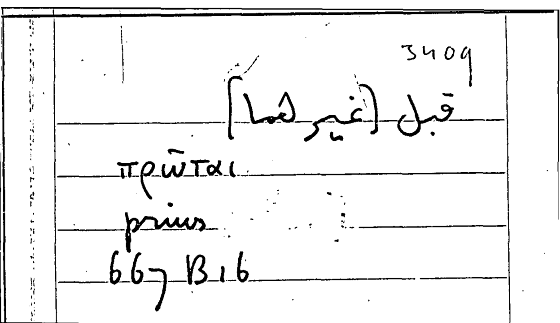 3409
قبل [غير لهما]
πρῶται
prius
667 B 16